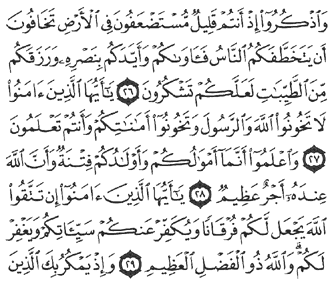 وَاذْكُرُوا إِذْ أَنتُمْ قَلِيلٌ مُّسْتَضْعَفُونَ فِي الْأَرْضِ تَخَافُونَ
أَن يَتَخَطَّفَكُمُ النَّاسُ فَـَٔاوَىٰكُمْ وَأَيَّدَكُم بِنَصْرِهِۦ وَرَزَقَكُم
مِّنَ الطَّيِّبَٰتِ لَعَلَّكُمْ تَشْكُرُونَ ٢٦ يَٰٓأَيُّهَا الَّذِينَ ءَامَنُوا
لَا تَخُونُوا اللَّهَ وَالرَّسُولَ وَتَخُونُوٓا أَمَٰنَٰتِكُمْ وَأَنتُمْ تَعْلَمُونَ
٢٧ وَاعْلَمُوٓا أَنَّمَآ أَمْوَٰلُكُمْ وَأَوْلَٰدُكُمْ فِتْنَةٌ وَأَنَّ اللَّهَ
عِندَهُۥٓ أَجْرٌ عَظِيمٌ ٢٨ يَٰٓأَيُّهَا الَّذِينَ ءَامَنُوٓا إِن تَتَّقُوا
اللَّهَ يَجْعَل لَّكُمْ فُرْقَانًا وَيُكَفِّرْ عَنكُمْ سَيِّـَٔاتِكُمْ وَيَغْفِرْ
لَكُمْ ۗ وَاللَّهُ ذُو الْفَضْلِ الْعَظِيمِ ٢٩ وَإِذْ يَمْكُرُ بِكَ الَّذِينَ